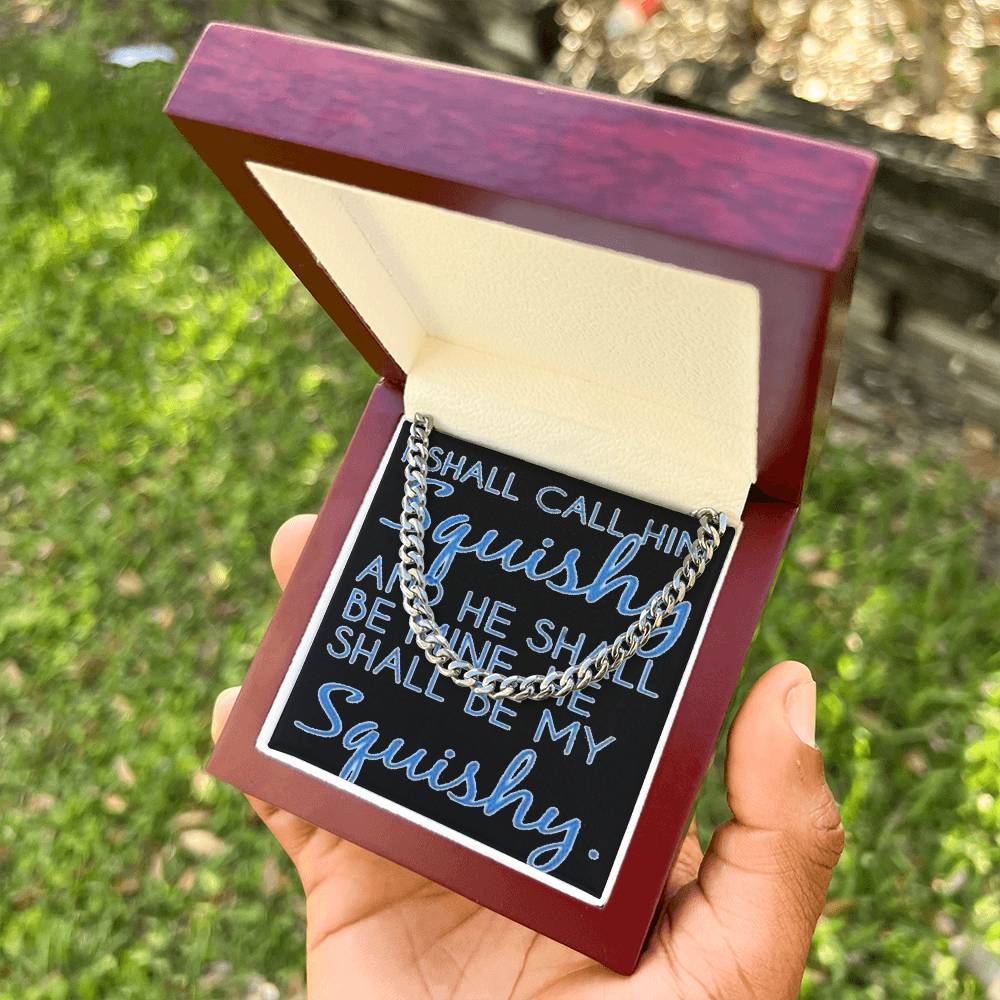 I SHALL CALL HIM
Squishy
AND HE SHALL
BE MINE HE
SHALL BE MY
Squishy.